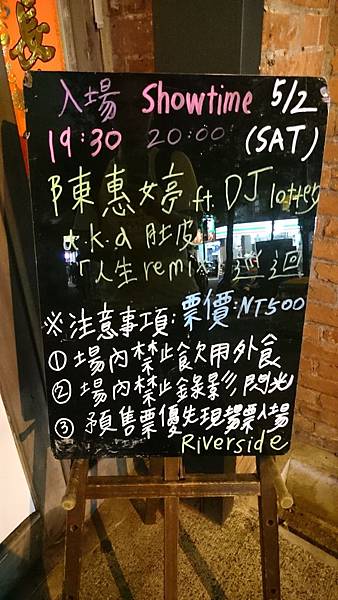 入場 Showtime 5/2
19:30 20:00 (SAT)
陳惠婷 ft. DJ lottery
a.k.a 肚皮
「人生remix 巡迴
※注意事項: 票價:NT500
①場內禁止飲用外食
②場內禁止錄影/閃光
③預售票優先現場票入場
Riverside